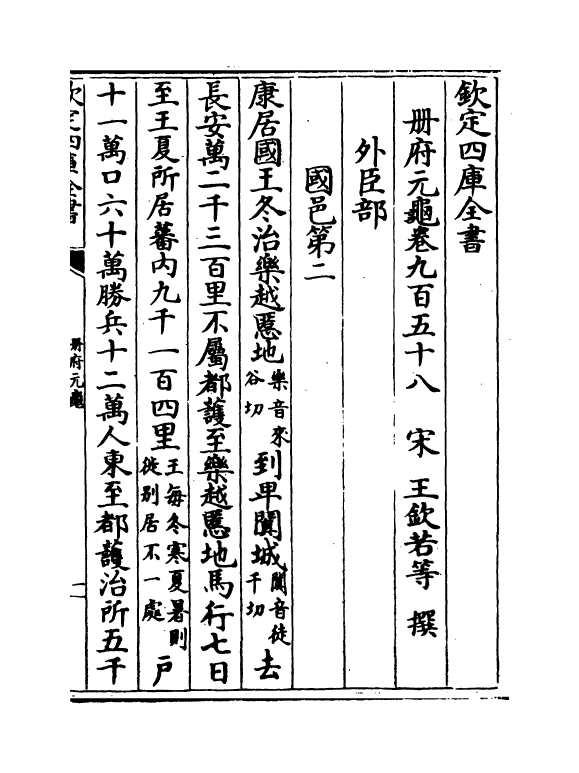 欽定四庫全書
册府元龜卷九百五十八 宋 王欽若等 撰
外臣部
國邑第二
康居國王冬治樂越慝地樂音來谷切到卑闐城闐音徒千切去
長安萬二千三百里不屬都護至樂越慝地馬行七日
至王夏所居蕃内九千一百四里王每冬寒夏暑則徙别居不一處戸
十一萬口六十萬勝兵十二萬人東至都護治所五千
欽定四庫全書
册府元龜